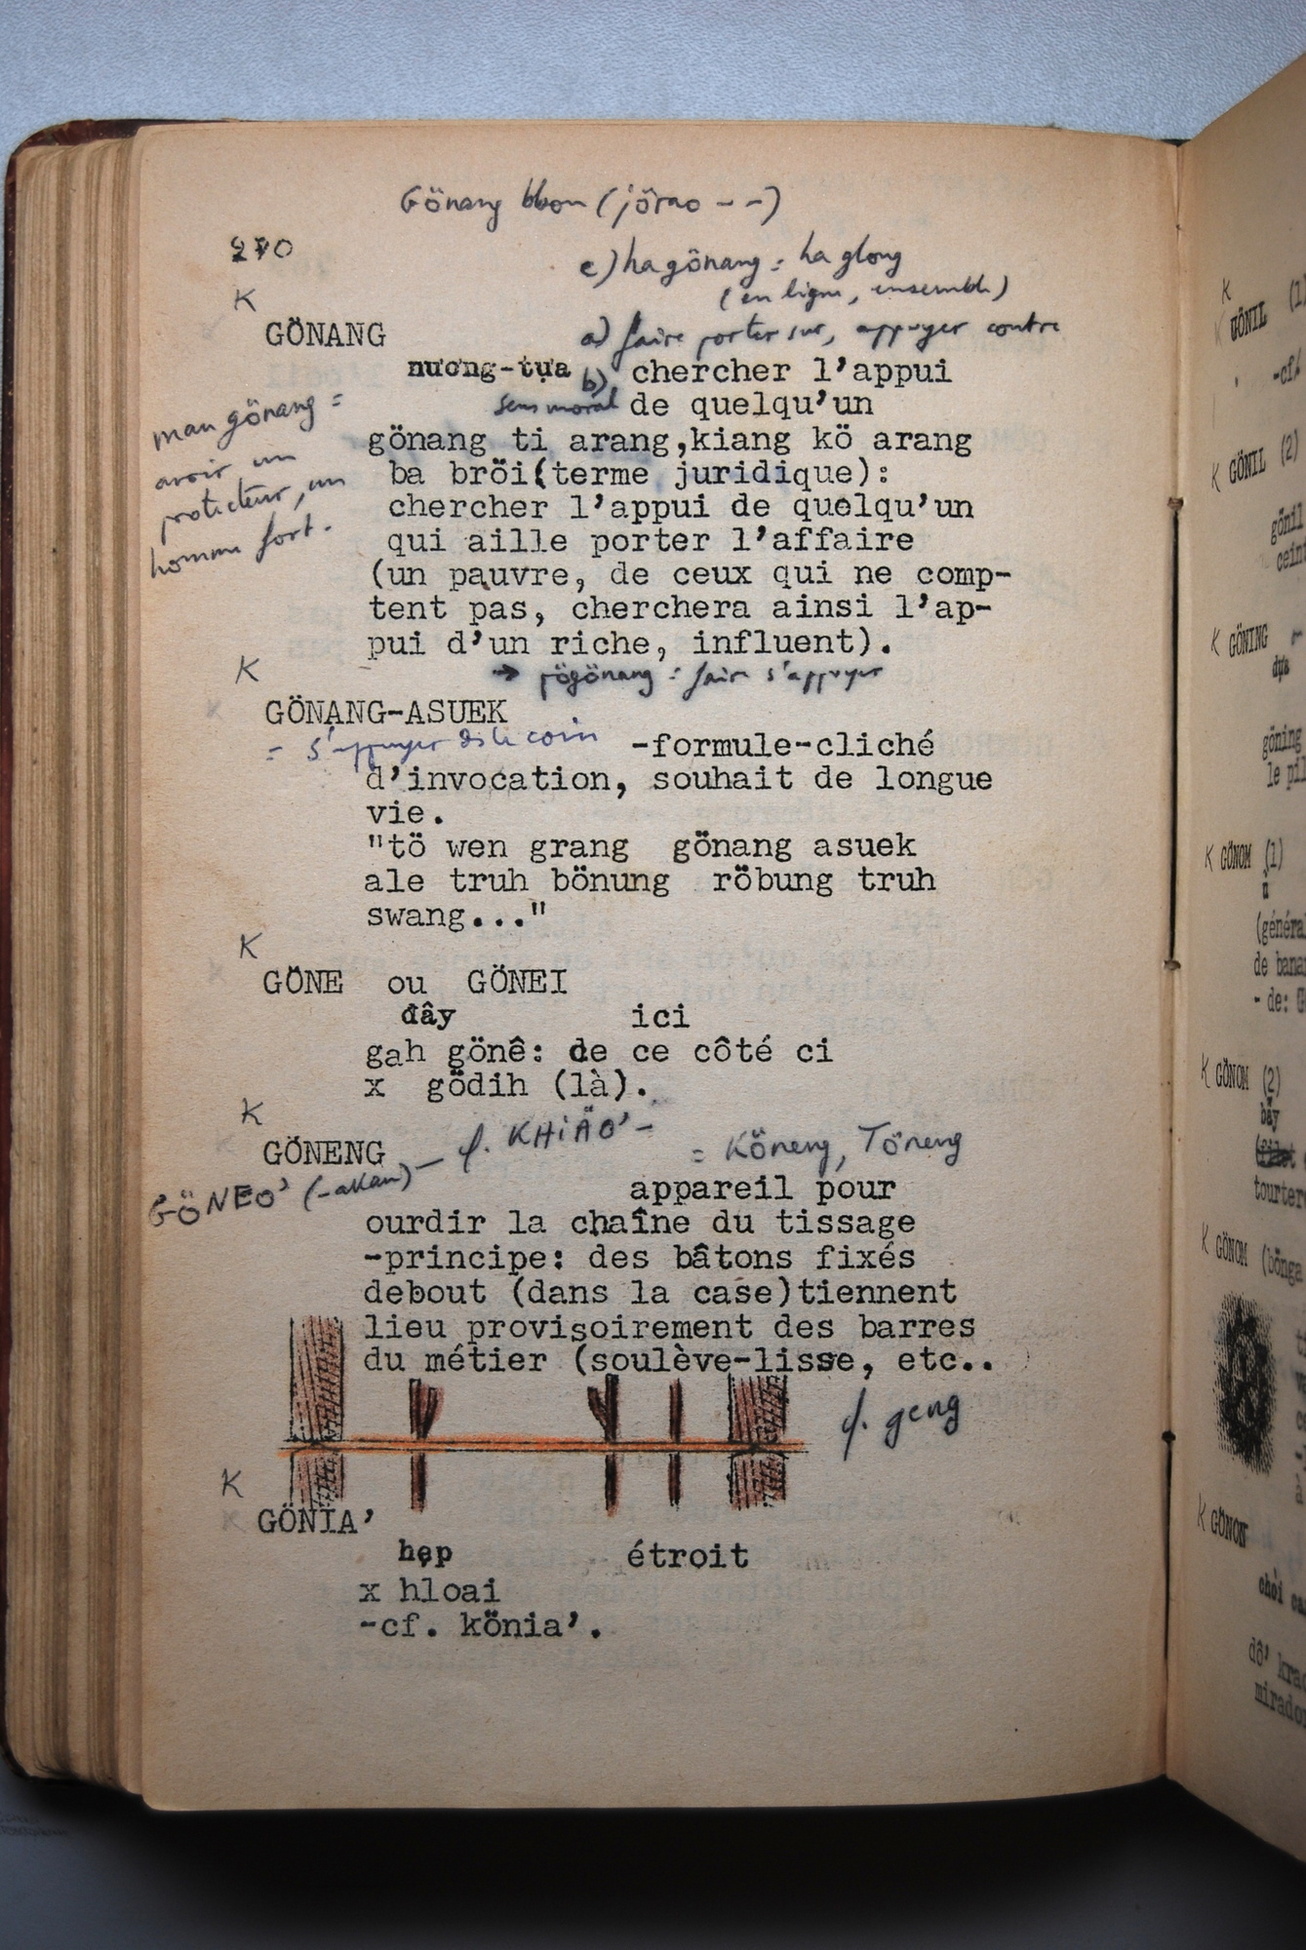 Gönang bbon (jörao - -)
270
c) ha gönang = ha glong
(en ligne, ensemble)
K
a) faire porter sur, appuyer contre
GÖNANG
nương-tựa b) chercher l'appui
sens moral de quelqu'un
man gönang =
avoir un
protecteur, un
homme fort.
gönang ti arang,kiang kö arang
ba bröi(terme juridique):
chercher l'appui de quelqu'un
qui aille porter l'affaire
(un pauvre, de ceux qui ne comp-
tent pas, cherchera ainsi l'ap-
pui d'un riche, influent).
→ pögönang = faire s'appuyer
K
GÖNANG-ASUEK
= s'appuyer ds le coin -formule-cliché
d'invocation, souhait de longue
vie.
"tö wen grang gönang asuek
ale truh bönung röbung truh
swang..."
K
GÖNE ou GÖNEI
đây ici
gah gönê: de ce côté ci
x gödih (là).
K
GÖNENG — cf. KHIÄO' -
= Köneng, Töneng
GÖNEO' (-akan)
appareil pour
ourdir la chaîne du tissage
-principe: des bâtons fixés
debout (dans la case)tiennent
lieu provisoirement des barres
du métier (soulève-lisse, etc..
cf. geng
K
GÖNIA'
hẹp étroit
x hloai
-cf. könia'.
K
GÖNIL (1)
-cf.
K GÖNIL (2)
gönil
ceint
K GÖNING
dựa
göning
le pil
K GÖNOM (1)
(généra
de bana
- de:
K GÖNOM (2)
bẫy
tourter
K GÖNOM (bönga
K GÖNON
chòi ca
dô' kra
mirado